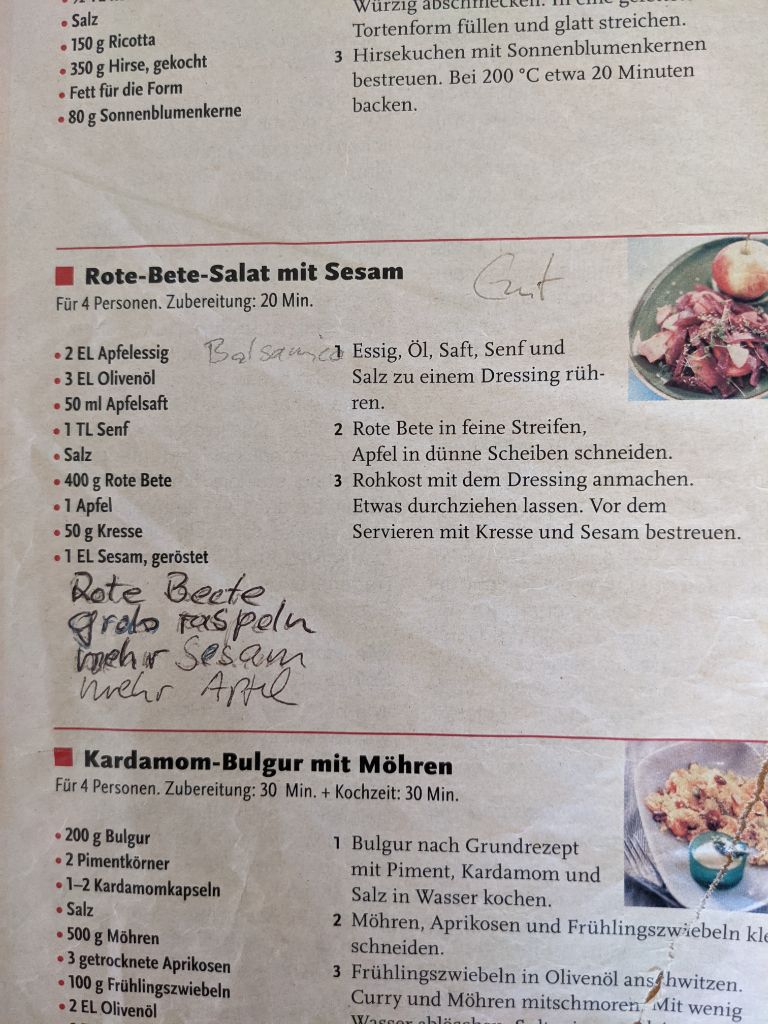 • Salz
• 150 g Ricotta
• 350 g Hirse, gekocht
• Fett für die Form
• 80 g Sonnenblumenkerne
Würzig abschmecken. In eine
Tortenform füllen und glatt streichen.
3 Hirsekuchen mit Sonnenblumenkernen
bestreuen. Bei 200 °C etwa 20 Minuten
backen.
Rote-Bete-Salat mit Sesam
Gut
Für 4 Personen. Zubereitung: 20 Min.
• 2 EL Apfelessig
Balsamico
• 3 EL Olivenöl
• 50 ml Apfelsaft
• 1 TL Senf
• Salz
• 400 g Rote Bete
• 1 Apfel
• 50 g Kresse
• 1 EL Sesam, geröstet
Rote Beete
grob raspeln
mehr Sesam
mehr Apfel
1 Essig, Öl, Saft, Senf und
Salz zu einem Dressing rüh-
ren.
2 Rote Bete in feine Streifen,
Apfel in dünne Scheiben schneiden.
3 Rohkost mit dem Dressing anmachen.
Etwas durchziehen lassen. Vor dem
Servieren mit Kresse und Sesam bestreuen.
Kardamom-Bulgur mit Möhren
Für 4 Personen. Zubereitung: 30 Min. + Kochzeit: 30 Min.
• 200 g Bulgur
• 2 Pimentkörner
• 1–2 Kardamomkapseln
• Salz
• 500 g Möhren
• 3 getrocknete Aprikosen
• 100 g Frühlingszwiebeln
• 2 EL Olivenöl
1 Bulgur nach Grundrezept
mit Piment, Kardamom und
Salz in Wasser kochen.
2 Möhren, Aprikosen und Frühlingszwiebeln kle
schneiden.
3 Frühlingszwiebeln in Olivenöl anschwitzen.
Curry und Möhren mitschmoren. Mit wenig
Wasser